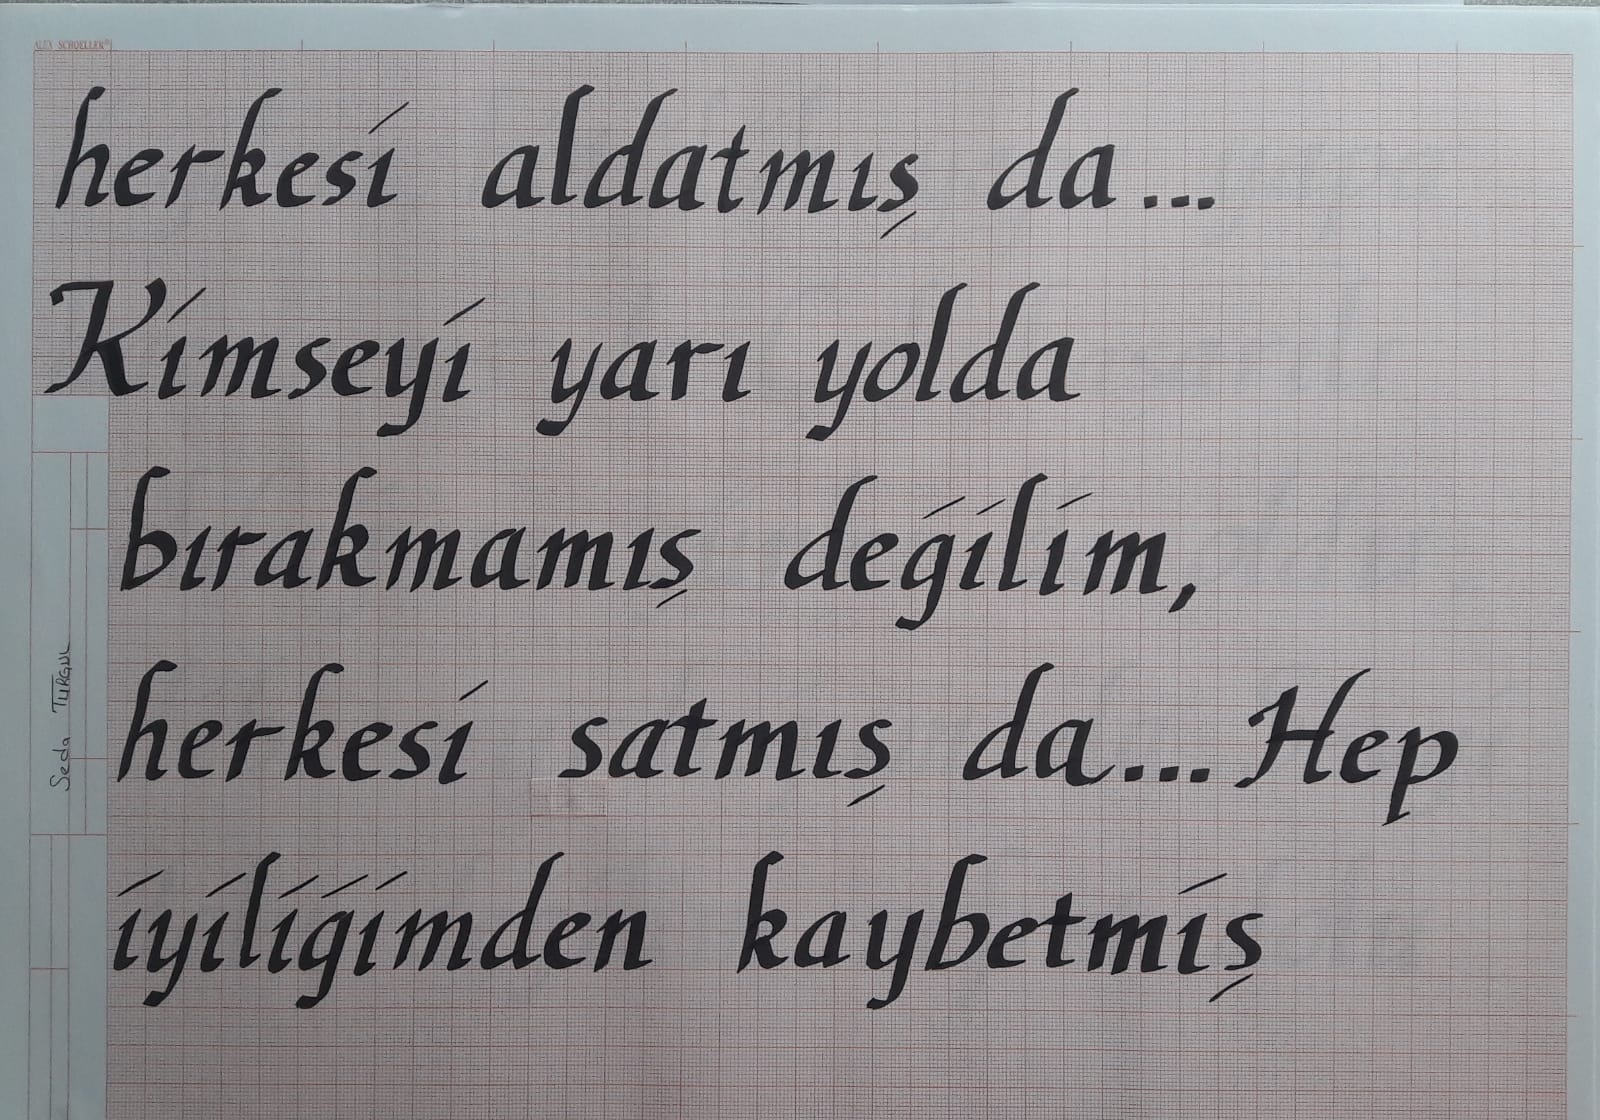 ALEX SCHOELLER®
herkesi aldatmış da...
Kimseyi yarı yolda
bırakmamış değilim,
herkesi satmış da... Hep
iyiliğimden kaybetmiş
Seda TURGUL